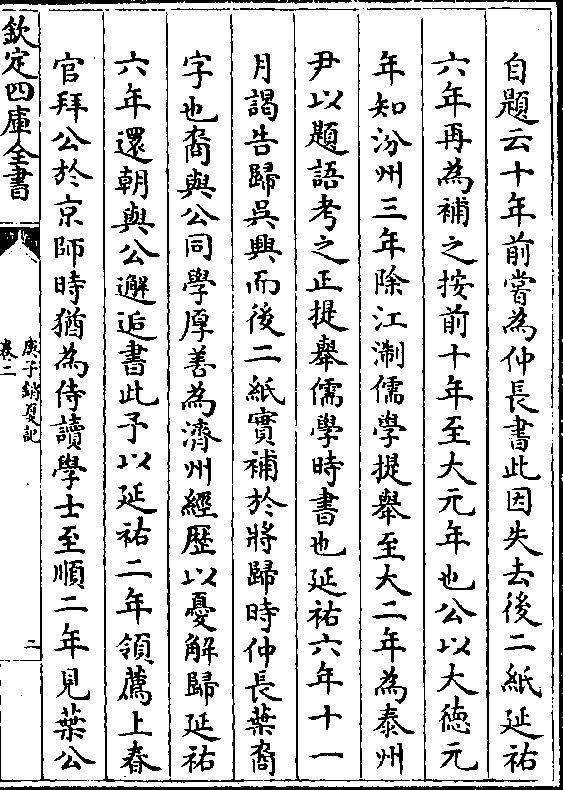 自題云十年前嘗為仲長書此因失去後二紙延祐
六年再為補之按前十年至大元年也公以大德元
年知汾州三年除江淛儒學提舉至大二年為泰州
尹以題語考之正提舉儒學時書也延祐六年十一
月謁告歸吳興而後二紙實補於將歸時仲長葉裔
字也裔與公同學厚善為濟州經歷以憂解歸延祐
六年還朝與公邂逅書此予以延祐二年領薦上春
官拜公於京師時猶為侍讀學士至順二年見葉公
欽定四庫全書
庚子銷夏記
卷二
二